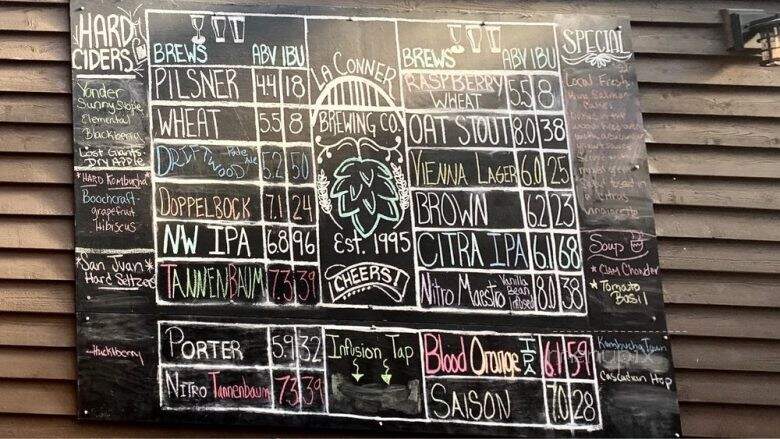 HARD
CIDERS
Yonder
Sunny Slope
Elemental
Blackberry
Lost Giants
Dry Apple
*HARD Kombucha*
Boochcraft-
grapefruit
Hibiscus
*San Juan*
Hard Seltzers
Huckleberry
BREWS ABV IBU
PILSNER 4.4 18
WHEAT 5.5 8
DRIFTWOOD Pale Ale 5.2 50
DOPPELBOCK 7.1 24
NW IPA 6.8 96
TANNENBAUM 7.3 39
LA CONNER
BREWING CO.
EST. 1995
CHEERS!
BREWS ABV IBU
RASPBERRY
WHEAT 5.5 8
OAT STOUT 8.0 38
VIENNA LAGER 6.0 25
BROWN 6.2 23
CITRA IPA 6.1 68
Nitro Maestro Vanilla Bean Infused 8.0 38
PORTER 5.9 32
NITRO Tannenbaum 7.3 39
Infusion Tap
Blood Orange IPA 6.1 59
SAISON 7.0 28
SPECIAL
Local Fresh
King Salmon
Cakes
Citrus
Vinaigrette
Soup
*Clam Chowder
*Tomato
Basil
Kombucha Town
Cascadian Hop